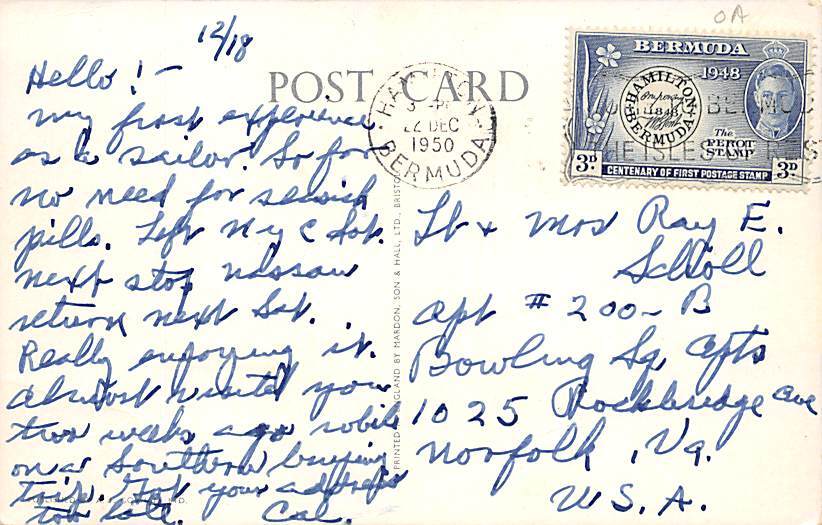 OA
12/18
POST CARD
HAMILTON
22 DEC
1950
BERMUDA
BERMUDA
1948
HAMILTON
1848
BERMUDA
The
PEROT
STAMP
3D 3D
CENTENARY OF FIRST POSTAGE STAMP
Hello! -
My first experience
as a sailor. So far
no need for seasick
pills. Left N Y C Sat.
next stop Nassau
return next Sat.
Really enjoying it.
Almost visited you
two weeks ago while
on a Southern buying
trip. Got your address
too late. Cal.
PRINTED ENGLAND BY MARDON, SON & HALL, LTD., BRISTOL
Lt + Mrs Ray E.
Scholl
Apt # 200-B
Bowling Sq. Apts
1025 Rockbridge Ave
Norfolk, Va.
U.S.A.